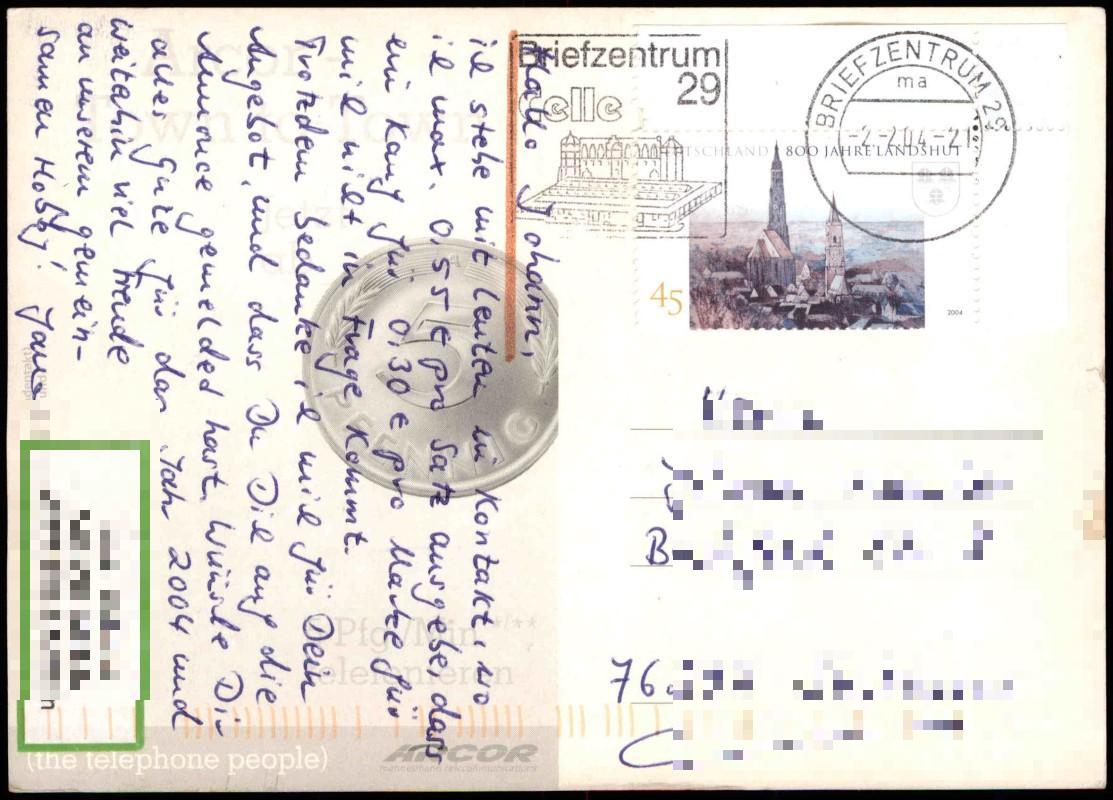 Hallo Johann,
ich stehe mit Leuten in Kontakt, wo
ich max. 0,55 € pro Satz ausgebe, dass
ein Kauf für 0,30 € pro Marke für
mich nicht in Frage kommt.
Trotzdem bedanke ich mich für Dein
Angebot, und dass Du Dich auf die
Annonce gemeldet hast. Wünsche Dir
alles Gute für das Jahr 2004 und
weiterhin viel Freude
an unserem gemein-
samen Hobby!
Arcor-
Town to Town
Pfg/Min.*/**
telefonieren
5
PFENNIG
G
(the telephone people)
ARCOR
mannesmann telecommunications
Briefzentrum
29
Celle
BRIEFZENTRUM 29
ma
-2-2.04-21
DEUTSCHLAND 800 JAHRE LANDSHUT
45
2004
B
76